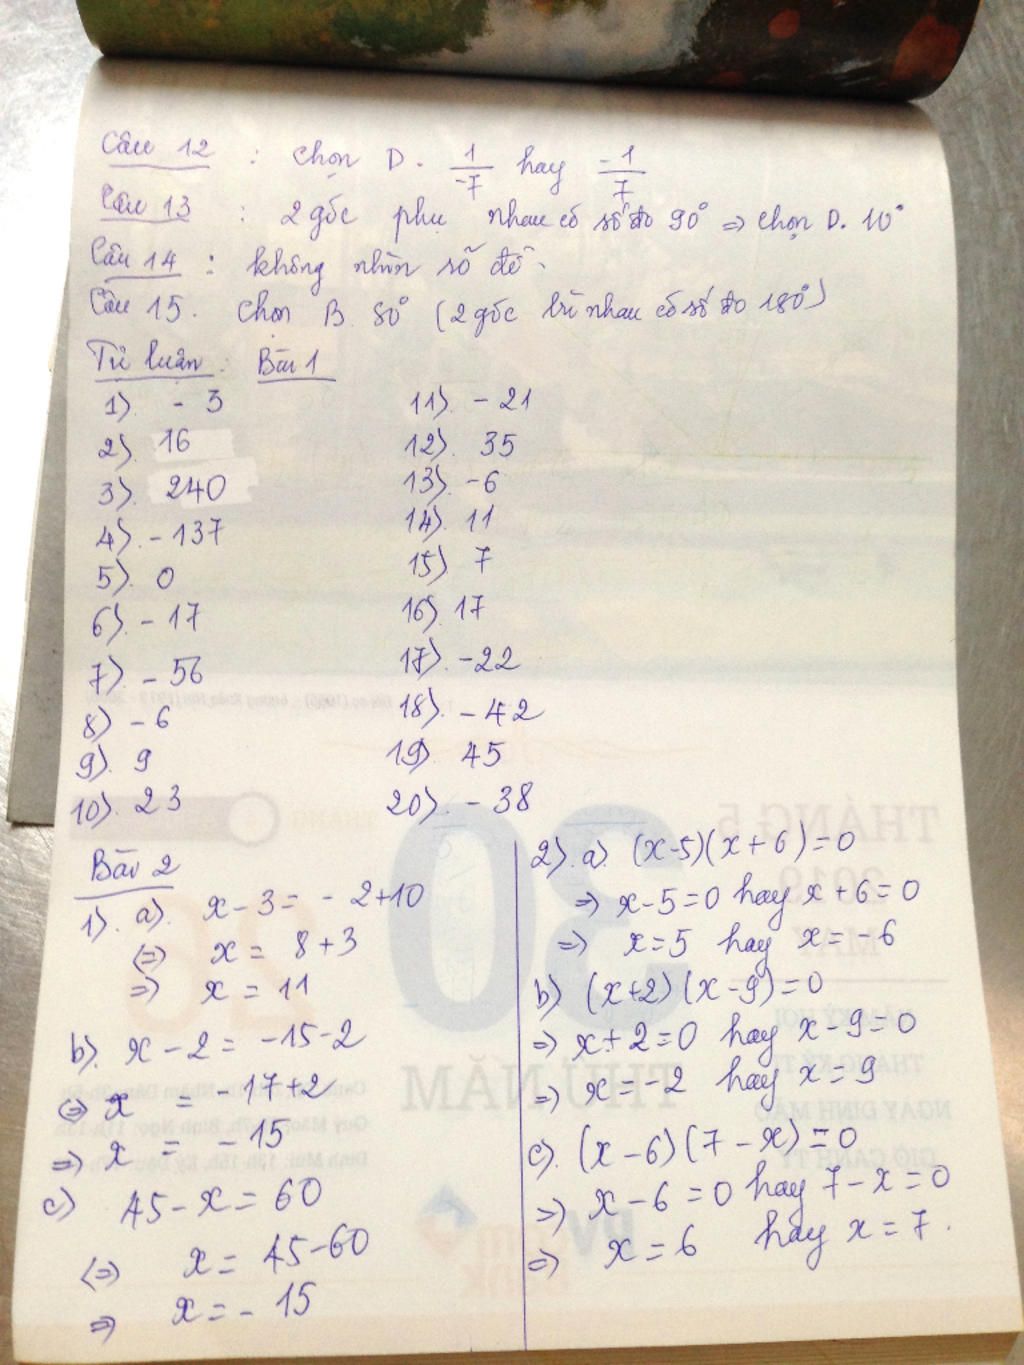 Câu 12 : chọn D. 1/-7 hay -1/7
Câu 13 : 2 góc phụ nhau có số đo 90° => chọn D. 10°
Câu 14 : không nhìn rõ đề.
Câu 15. Chọn B. 80° (2 góc bù nhau có số đo 180°)
Tự luận : Bài 1
1). - 3
2). 16
3). 240
4). - 137
5). 0
6). - 17
7). - 56
8) - 6
9). 9
10). 23
11). - 21
12). 35
13). -6
14). 11
15) 7
16). 17
17). -22
18). - 42
19). 45
20). - 38
Bài 2
1). a). x - 3 = - 2+10
<=> x = 8 + 3
=> x = 11
b). x - 2 = -15-2
<=> x = - 17+2
=> x = - 15
c) 45 - x = 60
<=> x = 45-60
=> x = - 15
2). a). (x-5)(x+6)=0
=> x-5=0 hay x+6=0
=> x=5 hay x=-6
b) (x+2)(x-9)=0
=> x+2=0 hay x-9=0
=> x=-2 hay x=9
c). (x-6)(7-x)=0
=> x-6=0 hay 7-x=0
=> x=6 hay x=7.